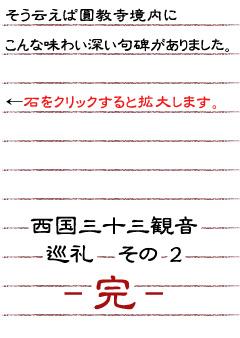 そう云えば圓教寺境内に
こんな味わい深い句碑がありました。
←石をクリックすると拡大します。
西国三十三観音
巡礼 その 2
- 完 -